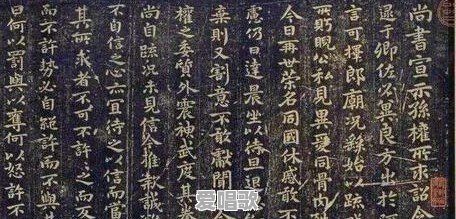 尚書宣示孫權所求詔令
逮于卿佐必冀良方出於
言可擇郎廟況繇始以疏
所眄睨公私見異愛同骨肉
今日再世榮名同國休慼敢
慮仍日達晨坐以待旦退
棄則又割意不敢獻聞
權之委質外震神武度其拳
尚自疏況未見信今推款誠
不自信之心亦宜待之以信而當
其所求者不可不許許之而反
而不許勢必自絕許而不與其
曰何以罰與以奪何以怒許不
爱唱歌